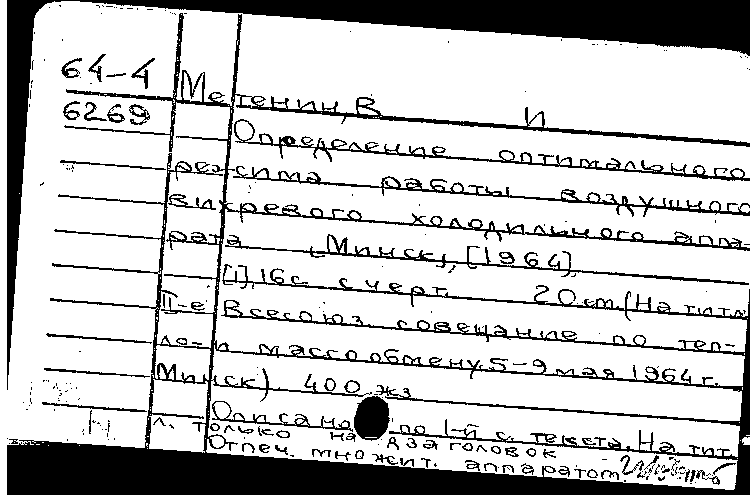 64-4 Метенин, В И
6269
Определение оптимального
режима работы воздушного
вихревого холодильного аппа-
рата [Минск], [1964]
[1], 16 с. с черт. 20 см. (На тит. л.
II-е Всесоюз. совещание по теп-
ло- и массообмену. 5-9 мая 1964 г.
Минск) 400 экз
Описано по 1-й с. текста. На тит.
л. только надзаголовок
Отпеч. множит. аппаратом